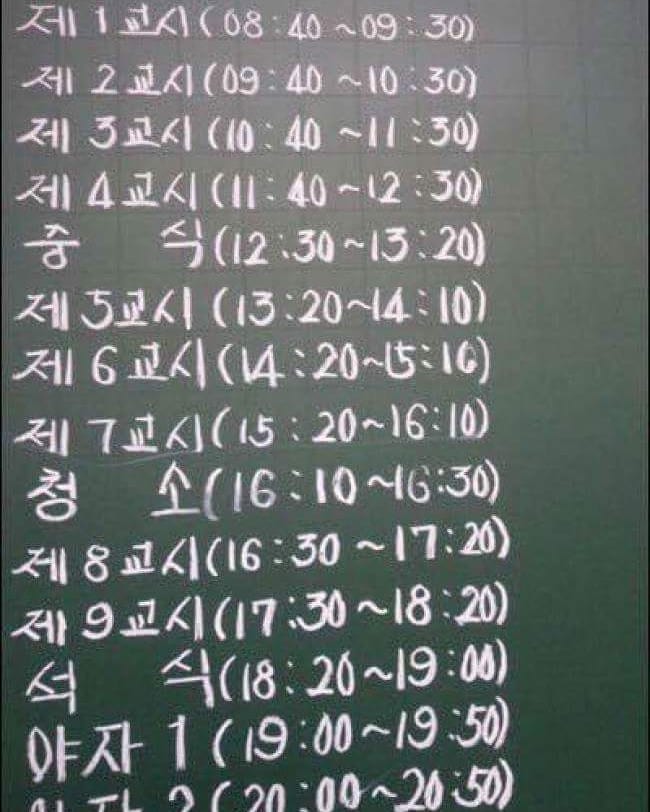 제 1 교시 (08:40 ~09:30)
제 2 교시 (09:40 ~10:30)
제 3 교시 (10:40 ~11:30)
제 4 교시 (11:40 ~12:30)
중 식 (12:30~13:20)
제 5교시 (13:20~14:10)
제 6 교시 (14:20~15:10)
제 7 교시 (15:20~16:10)
청 소 (16:10~16:30)
제 8 교시 (16:30 ~17:20)
제 9 교시 (17:30~18:20)
석 식 (18:20~19:00)
야자 1 (19:00~19:50)
야자 2 (20:00~20:50)